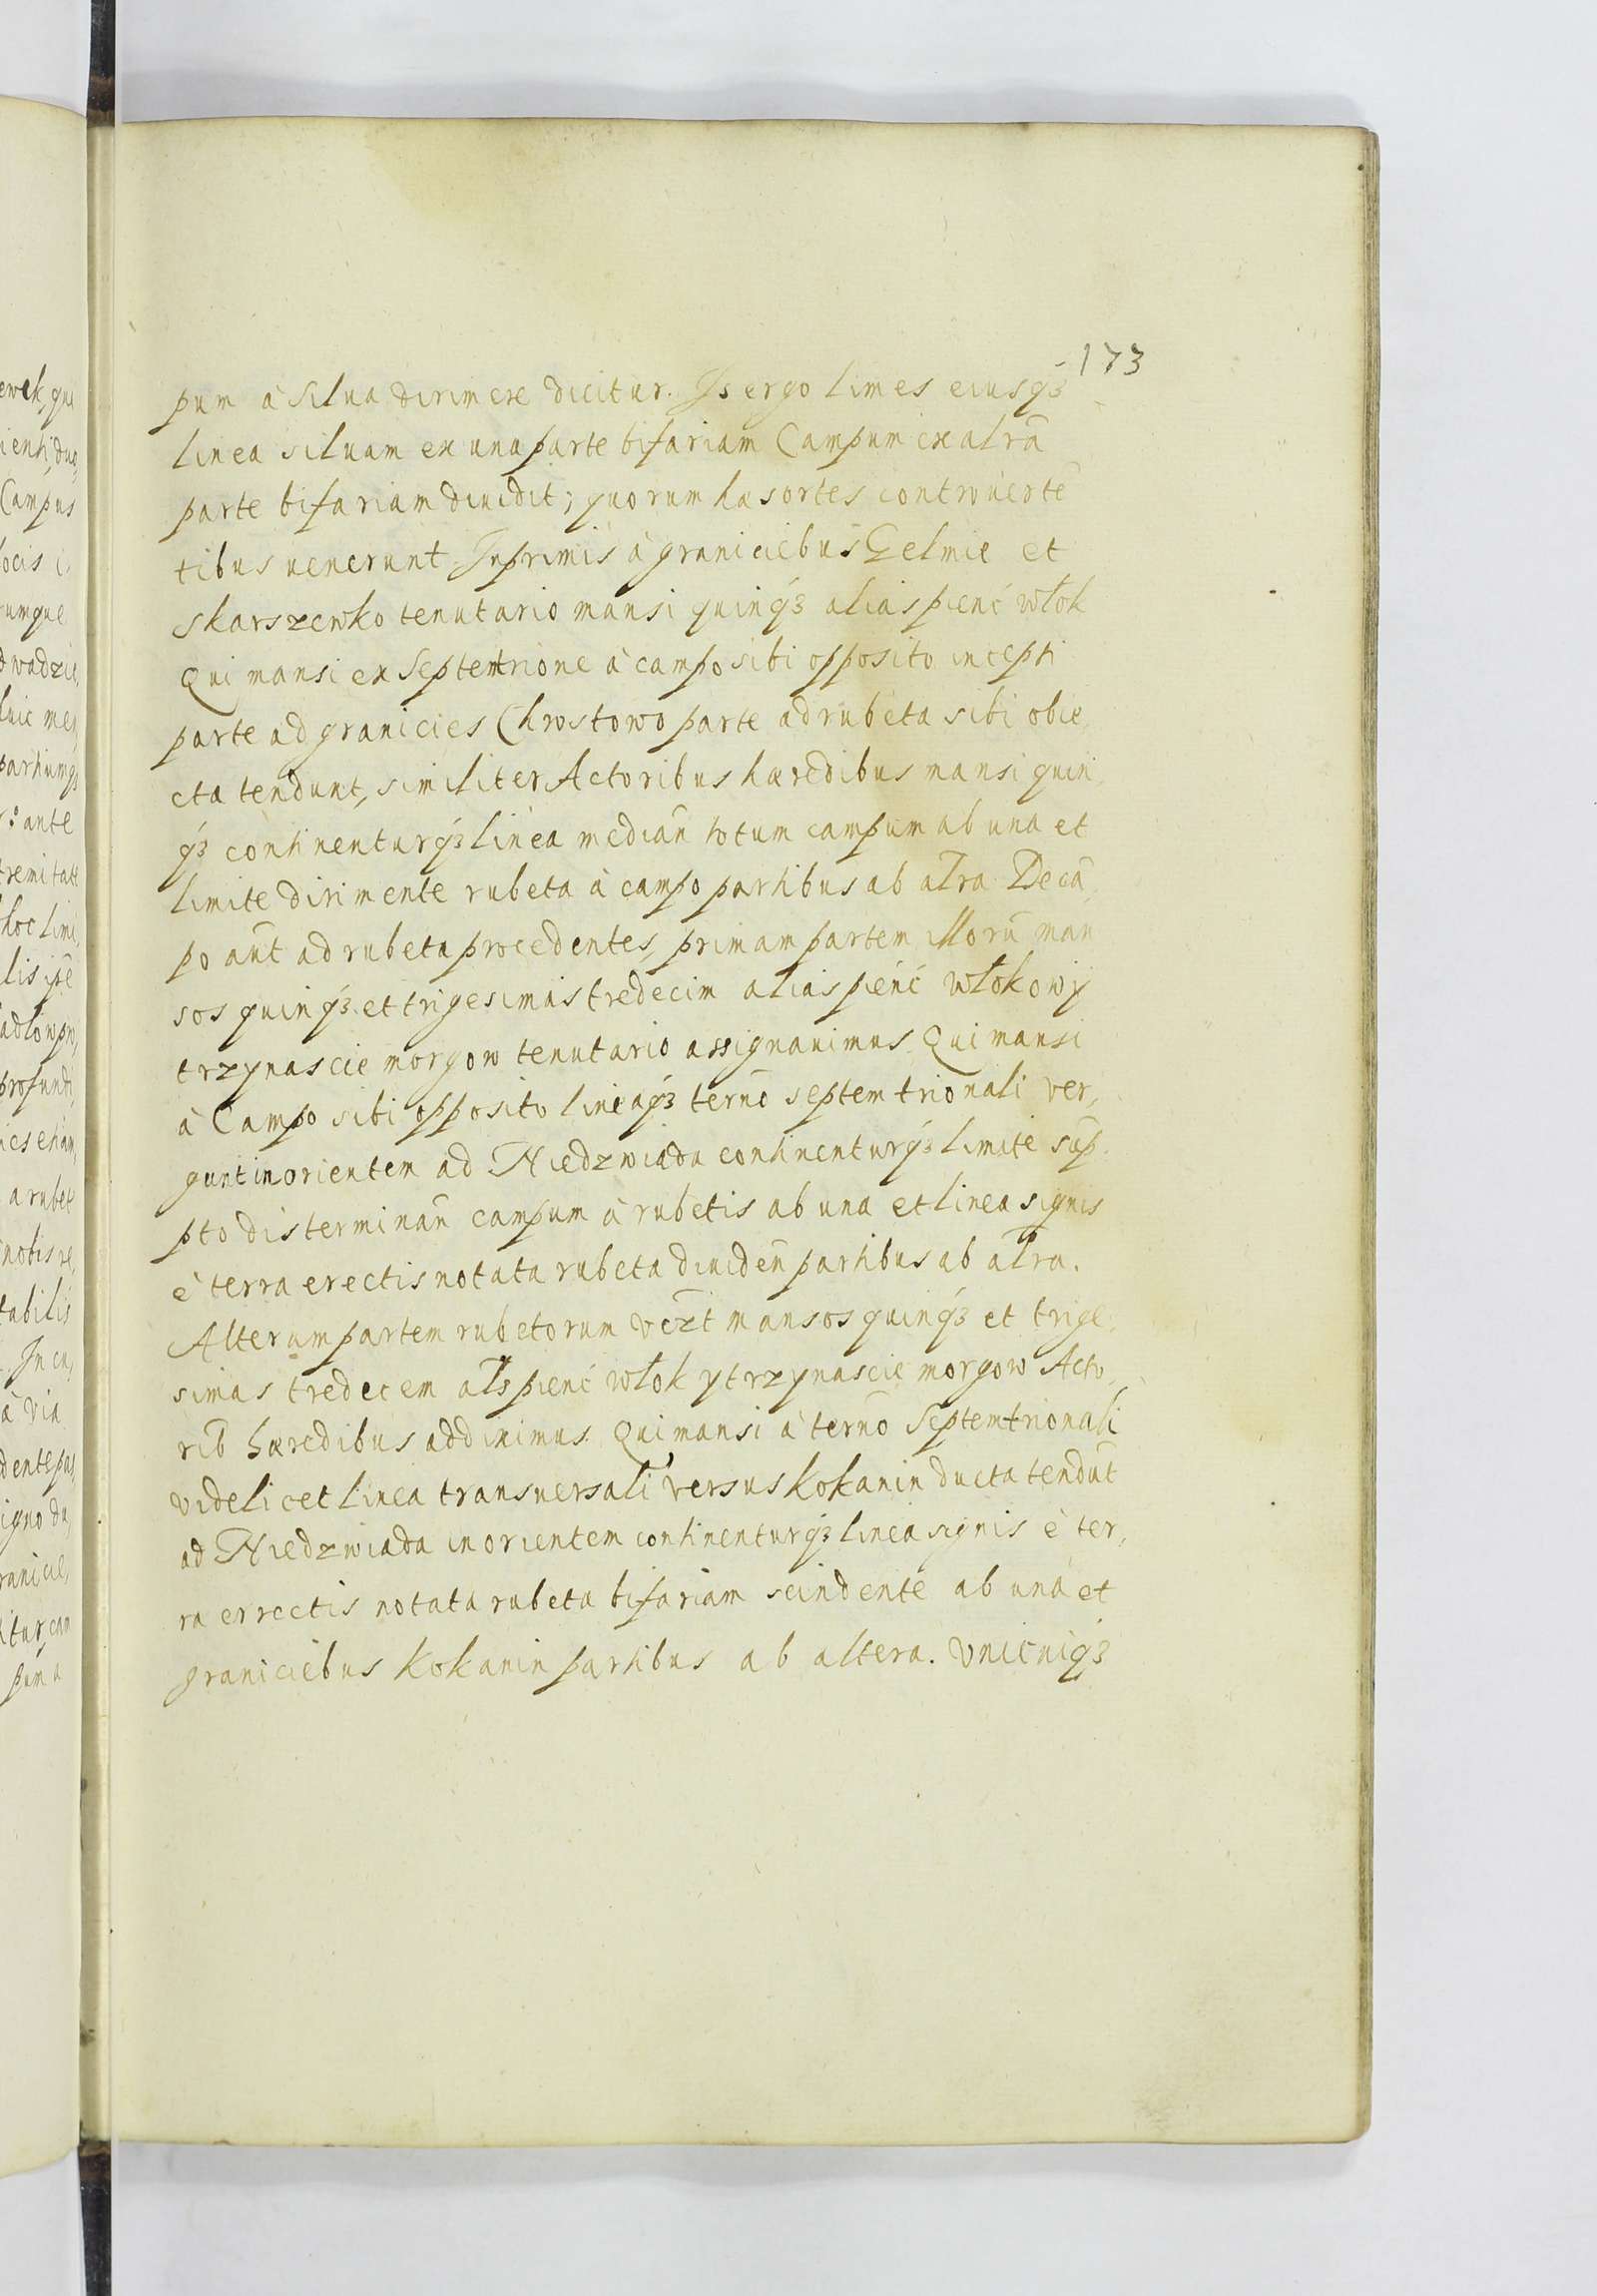 173
pum à Silua dirimere dicitur. Is ergo limes eiusqꝫ
linea siluam ex una parte bifariam Campum ex alrã
parte bifariam diuidit; quorum hæ sortes controuertẽ
tibus uenerunt. Inprimis à graniciebus Zelmie et
Skarszewko tenutario mansi quinqꝫ alias pienć włok
Qui mansi ex Septemtrione à campo sibi opposito incepti
parte ad granicies Chrostowo parte ad rubeta sibi obie,
cta tendunt, similiter Actoribus hæredibus mansi quin,
qꝫ continenturqꝫ linea mediañ totum campum ab una et
limite dirimente rubeta à campo partibus ab alra. De cã,
po aũt ad rubeta procedentes, primam partem illorũ man
sos quinqꝫ et trigesimas tredecim alias pienć włok owy
trzynascie morgow tenutario assignauimus. Qui mansi
à Campo sibi opposito lineaqꝫ terño septemtrionali ver,
gunt in orientem ad Niedzwiada continenturqꝫ limite sup̃,
pto disterminañ campum à rubetis ab una et linea signis
è terra erectis notata rubeta diuideñ partibus ab alra.
Alteram partem rubetorum vezt mansos quinqꝫ et trige,
simas tredecem als pienć włok y trzynascie morgow Acto,
rib hæredibus addiximus. Qui mansi à terño Septemtrionali
videlicet linea transuersali versus Kokanin ducta tendũt
ad Niedzwiada in orientem continenturqꝫ linea signis è ter,
ra errectis notata rubeta bifariam scindente ab una et
graniciebus Kokanin partibus ab altera. Vnicuiqꝫ